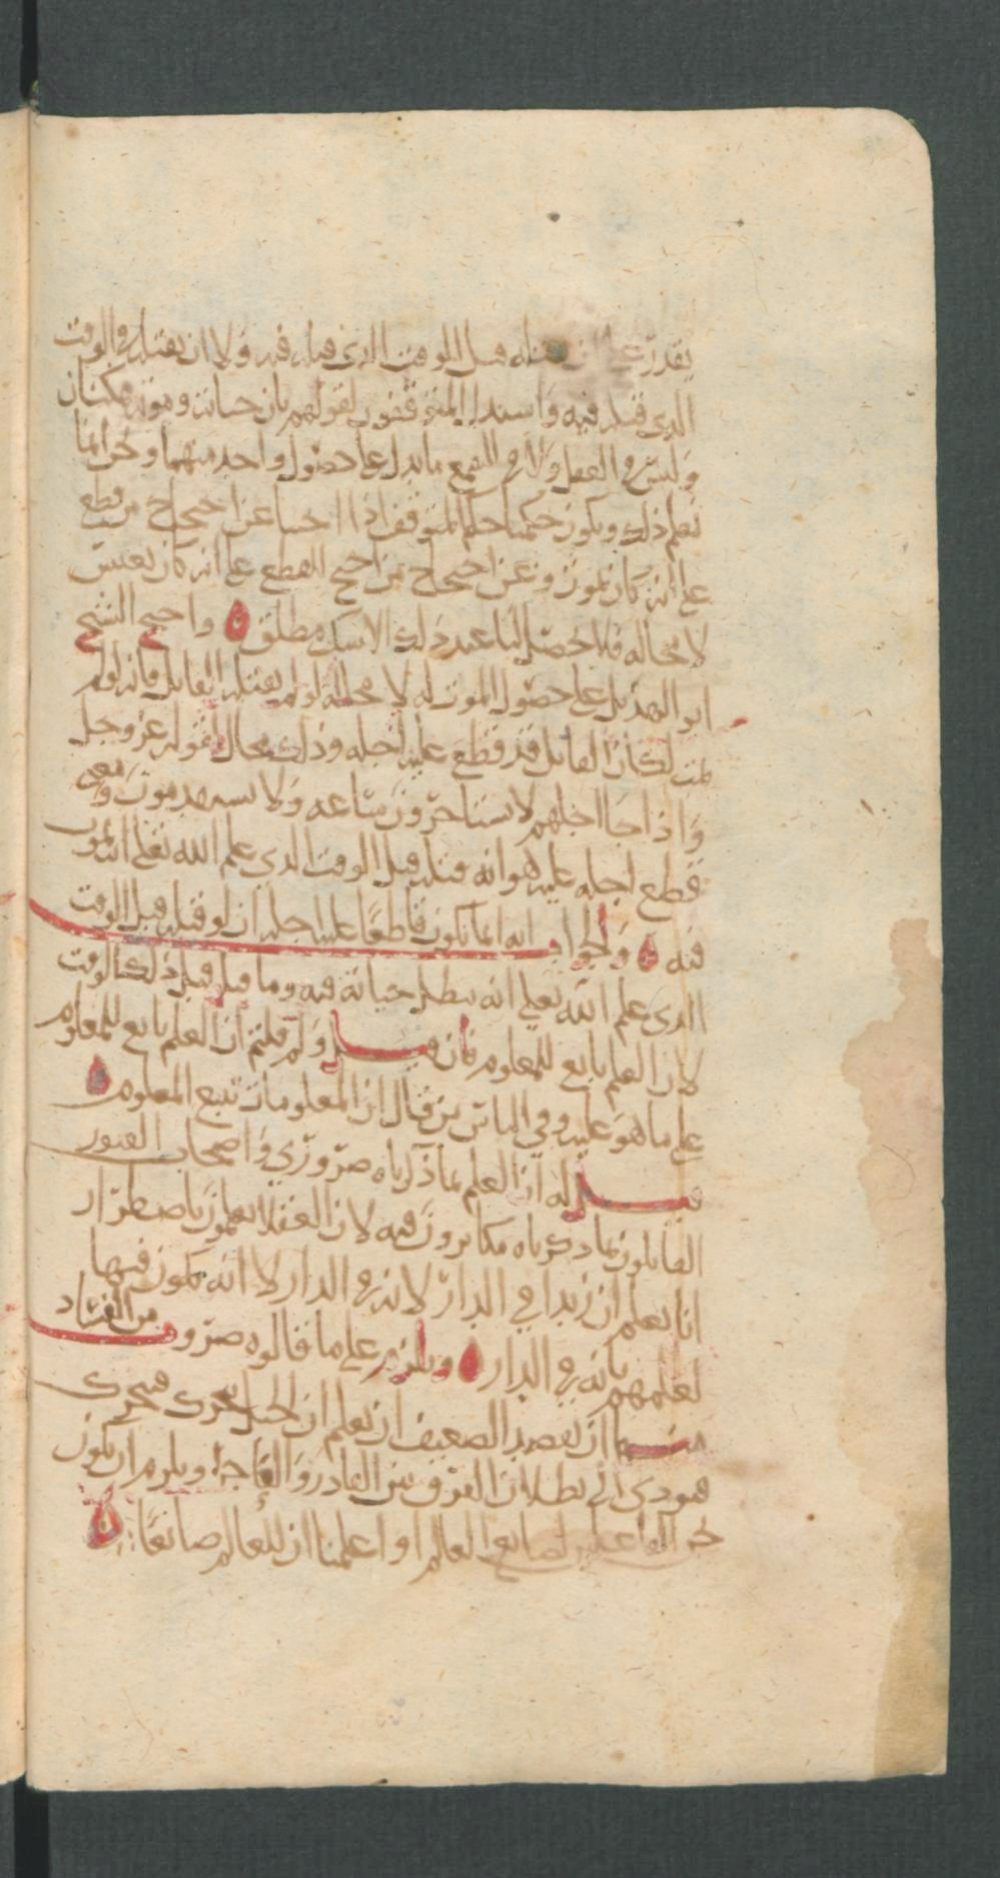 يقدر على ان يقتله قبل الوقت الذي قتله فيه ولا ان يقتله في الوقت
الذي قتله فيه واستدل المتوقفون لقولهم بان حياته وموته ممكنان
وليس في العقل ولا في السمع ما يدل على حصول واحد منهما ونحن انما
نعلم ذلك ويكون حكمنا حكم المتوقف اذا اجبنا عن احتجاج من قطع
على انه كان يموت وعن احتجاج من احتج القطع على انه كان يعيش
لا محالة فلا يحصل لنا عند ذلك الا شك مطلق ه واحتج الشيخ
ابو الهذيل على حصول الموت له لا محالة لو لم يقتله القاتل فانه لو لم
يمت لكان القاتل قد قطع عليه اجله وذلك محال لقوله عز وجل
واذا جا اجلهم لا يستاخرون ساعه ولا يستقدمون ومعنى
قطع اجله عليه هو انه قتله قبل الوقت الذي علم الله تعالى انه يموت
فيه ه والجواب انه انما يكون قاطعا عليه اجله ان لو قتله قبل الوقت
الذي علم الله تعالى انه يبطل حياته فيه وما قتل قبل ذلك الوقت
لان العلم تابع للمعلوم فان قيل ولم قلتم ان العلم تابع للمعلوم
على ما هو عليه وفي الناس من قال ان المعلومات تتبع المعلوم ه
قيل له ان العلم بما ذكرناه ضروري واصحاب
القائلون بما ذكرناه مكابرون فيه لان العقلا يعلمون باضطرار
انا نعلم ان زيدا في الدار لانه في الدار لا انه يكون فيها
لعلمهم بانه في الدار ه ويلزم على ما قالوه ضروب من الفساد
منها ان يصير الضعيف ان يعلم ان الجبل يتحرك فيتحرك
فيودي الى بطلان الفرق بين القادر والعاجز ويلزم ان نكون
نحن الفاعلين لصانع العالم اذا علمنا ان للعالم صانعا ه